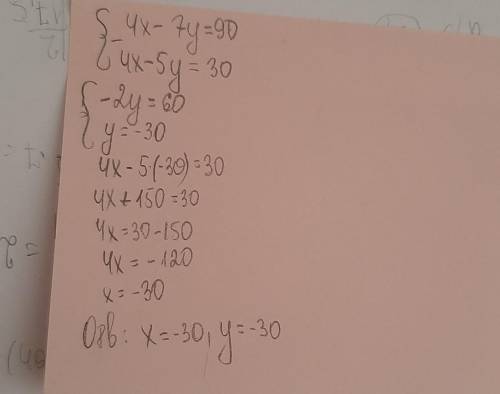 { 4x - 7y = 90
- 4x - 5y = 30
{ -2y = 60
y = -30
4x - 5·(-30) = 30
4x + 150 = 30
4x = 30 - 150
4x = -120
x = -30
Отв: x = -30, y = -30